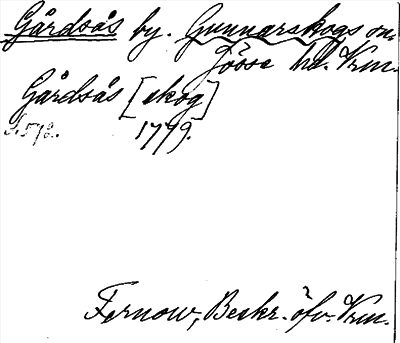 Gårdsås by. Gunnarskogs sn.
Jösse hd. Vrm.
Gårdsås [skog]
S. 572. 1779.
Fernow, Beskr. öfv. Vrm.